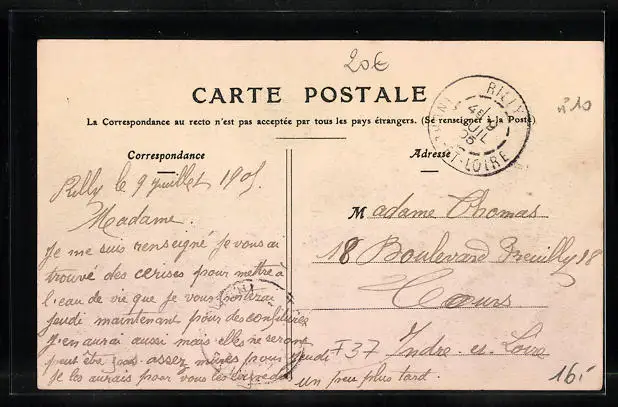 20€
CARTE POSTALE
La Correspondance au recto n'est pas acceptée par tous les pays étrangers. (Se renseigner à la Poste)
RILLY
INDRE-ET-LOIRE
9
JUIL
05
n°10
Correspondance
Adresse
Rilly le 9 juillet 1905
Madame
Je me suis renseigné je vous ai
trouvé des cerises pour mettre à
l'eau de vie que je vous
jeudi maintenant pour des confitures
J'en aurai aussi mais elles ne seront
peut être pas assez mûres pour jeudi
je les aurais pour vous les
un peu plus tard.
Madame Thomas
18 Boulevard Preuilly 18
Tours
I 37 Indre-et-Loire
16